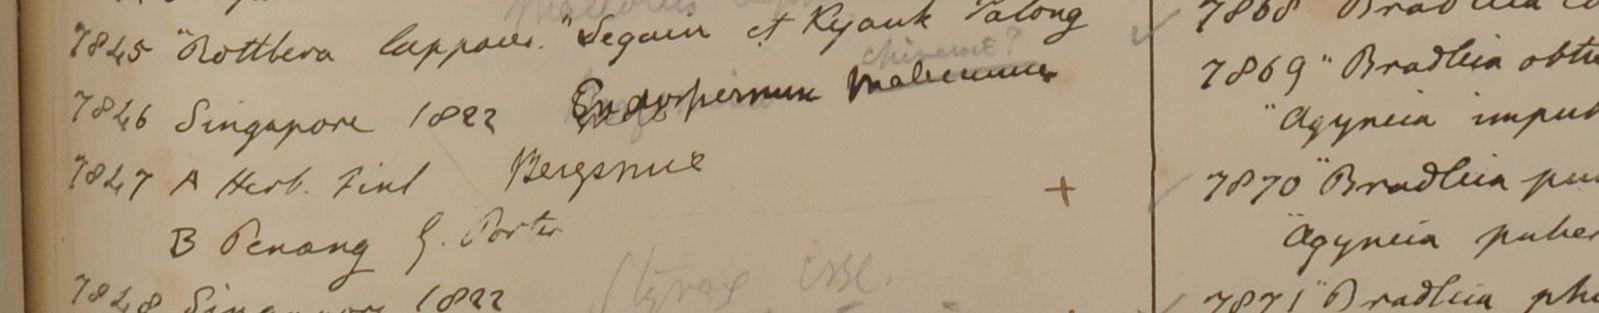 7845 "Rottlera lappacea." Segain et Kyouk Talong
chinense?
7846 Singapore 1822 Endospermum malaccense
7847 A Herb. Finl Bergsmia
B Penang G. Porter
Styrax esse.
7848 Singapore 1822
7868 Bradleia
7869 "Bradleia obtu
"Agyneia impub
7870 "Bradleia pu
"Agyneia puber
7871 "Bradleia phi